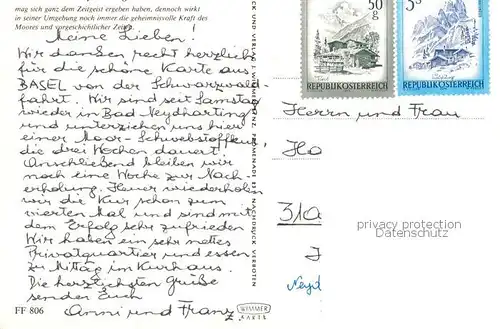 mag sich ganz dem Zeitgeist ergeben haben, dennoch wirkt
in seiner Umgebung noch immer die geheimnisvolle Kraft des
Moores und vorgeschichtlicher Zeiten.
Meine Lieben!
Wir danken recht herzlich
für die schöne Karte aus
BASEL von der Schwarzwald-
fahrt. Wir sind seit Samstag
wieder in Bad Neydharting
und unterziehen uns hier
einer Moor-Schwebstoffkur,
die drei Wochen dauert!
Anschließend bleiben wir
noch eine Woche zur Nach-
erholung. Heuer wiederholen
wir die Kur schon zum
vierten Mal und sind mit
dem Erfolg sehr zufrieden
Wir haben ein sehr nettes
Privatquartier und essen
zu Mittag im Kurhaus.
Die herzlichsten Grüße
senden Euch
Anni und Franz
FF 806
WIMMER
KARTE
CK UND VERLAG WIMMER, LINZ, PROMENADE 23, NACHDRUCK VERBOTEN
50
g
REPUBLIK ÖSTERREICH
5S
REPUBLIK ÖSTERREICH
Herrn und Frau
Ho
privacy protection
Datenschutz
Neyd